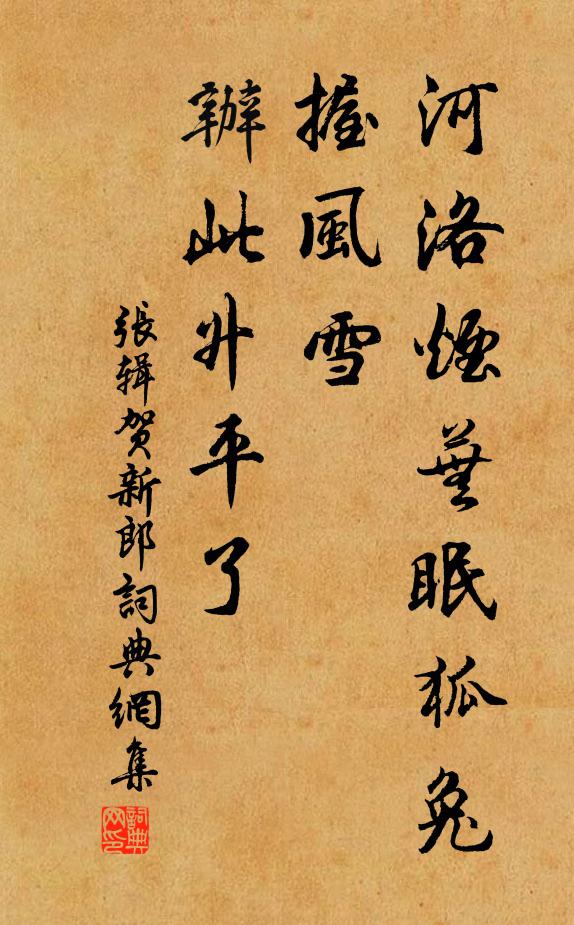 河洛煙蕪眠狐兔
握風雪
辦此升平了
張輯賀新郎詞典網集
詞典网印